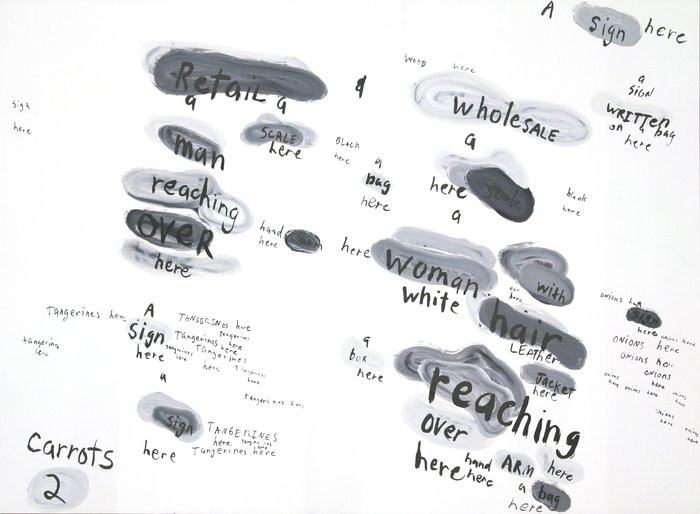 A sign here
Retail & wholesale
word here
a
SIGN
WRITTEN
on a bag
here
sign
here
a a
man
SCALE
here
Black
here
a
bag
here
a
here
scale
a
black
here
reaching
OVER
here
hand
here
arm
here
woman
with
white
ear
here
hair
LEATHER
Jacket
here
onions here
sign
here
onions here
ONIONS here
ONIONS here
ONIONS
here
Tangerines here
A
sign
here
TANGERINES here
Tangerines here
Tangerines here
Tangerines
here
tangerine
here
a
sign
here
TANGERINES
here
Tangerines here
Tangerines here
a
box
here
reaching
over
here
hand
here
ARM
here
a
bag
here
carrots
2